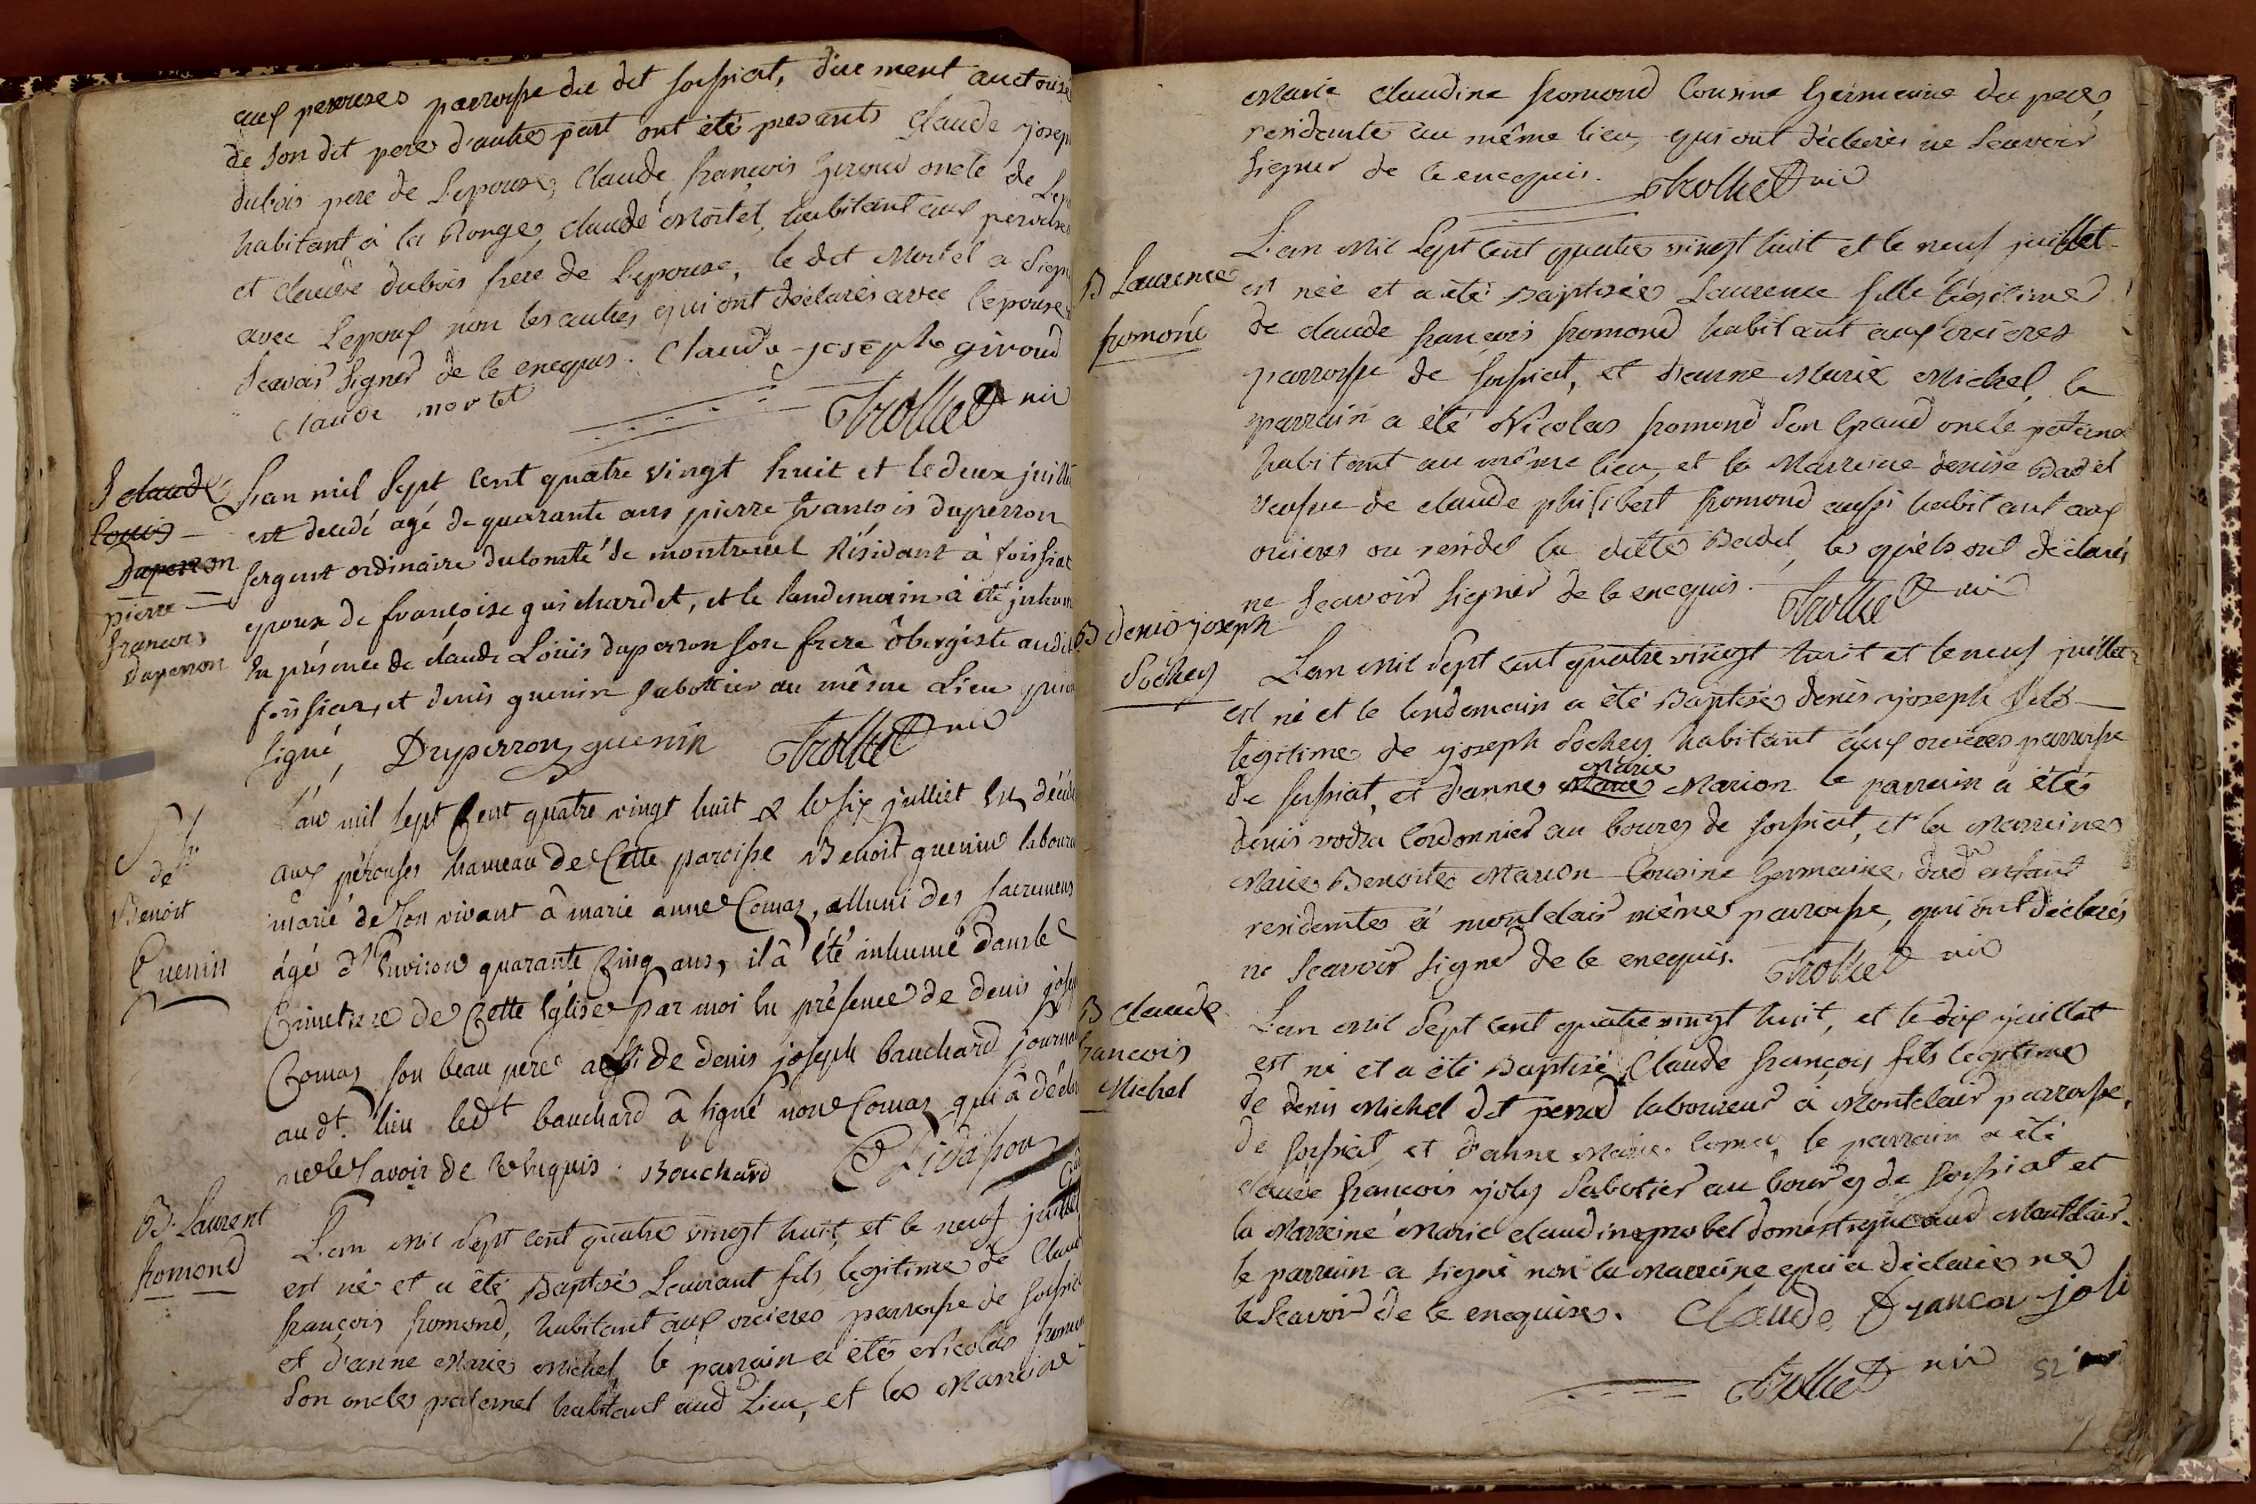 aux perouses parroisse du dit foissiat, duement auctorisé
de son dit pere d'autre part ont été presents Claude joseph
dubois pere de L'epouse, Claude françois Giroud oncle de L'ep
habitant à la Ronge, claude Mortel, habitant aux perouses
et claude dubois frere de L'epouse, le dit Mortel a signé
avec L'epoux non les autres qui ont déclarés avec l'epouse
scavoir signer de ce enequis. Claude joseph giroud
Claude mortel
Trollier vic
S claude
Louis
Duperron
pierre
francois
duperron
L'an mil sept cent quatre vingt huit et le deux juillet
est decédé agé de quarante ans pierre françois duperron
sergent ordinaire du Comté de montrevel Résidant à foissiat
epoux de françoise guichardet, et le landemain à été inhum
En présence de claude Loüis duperron son frere ôbergiste audit
foissiat, et denis guenin sabottier au même Lieu qui on
signé, Duperron guenin Trollier vic
S
de
Benoit
Guenin
L'an mil sept cent quatre vingt huit & le six julliet est décédé
aux pérouses hameau de Cette paroisse Benoit guenin laboureur
marié de son vivant à marie anne Comas, Muni des sacremens
âgé d'Environ quarante Cinq ans, il à été inhumé dans le
Cimetiere de Cette Eglise par moi En présence de denis joseph
Comas son beau pere & de denis joseph bauchard journal
audt. lieu ledt bauchard à signé non Comas qui à déclar
ne le savoir de ce Enquis. Bouchard
B. Laurent
fromond
L'an mil sept cent quatre vingt huit, et le neuf juillet
est né et a été Baptisé Laurant fils legitime de Claud
françois fromond, habitant aux orcieres parroisse de foissiat
et d'anne Marie Michel, le parrain a été Nicolas fromon
son oncle paternel habitant aud Lieu, et la Marraine
Marie claudine fromond Cousine Germaine du pere,
residante au même lieu, qui ont déclarés ne Scavoir
signer de ce enequis. Trollier vic
B Laurence
fromond
L'an mil sept cent quatre vingt huit et le neuf juillet
est née et a été Baptisée Laurence fille légitime
de claude françois fromond habitant aux orcieres
parroisse de foissiat, et d'anne Marie Michel, le
parrain a été Nicolas fromond son Grand oncle paterne
habitant au même lieu, et la Marreine denise Badel
veufve de claude philibert fromond aussi habitant aux
orcieres ou reside la ditte Badel, les quels ont déclarés
ne Scavoir signer de ce enequis. Trollier vic
B denis joseph
Sochey
L'an mil sept cent quatre vingt huit et le neuf juillet
est né et le lendemain a été Baptisé denis joseph fils
legitime de joseph Sochey habitant aux orcieres parroisse
de foissiat, et d'anne Marie Marion le parrain a été
denis vodra Cordonnier au bourg de foissiat, et la Marreine
Marie Benoite Marion Cousine Germaine dud enfant
residante à montclair même parroisse, qui ont déclarés
ne Scavoir signer de ce enequis. Trollier vic
B Claude
francois
Michel
L'an mil sept cent quatre vingt huit, et le dix juillet
est né et a été Baptisé Claude françois fils legitime
de denis Michel dit perrod laboureur à Montclair parroisse
de foissiat, et d'anne Marie Comas, le parrain a été
claude francois joly sabotier au bourg de foissiat et
la Marreine Marie claudine probel domestique aud Montclair
le parrain a signé non la marreine qui a déclarée ne
le Scavoir de ce enequise. Claude Francoi joli
Trollier vic
52